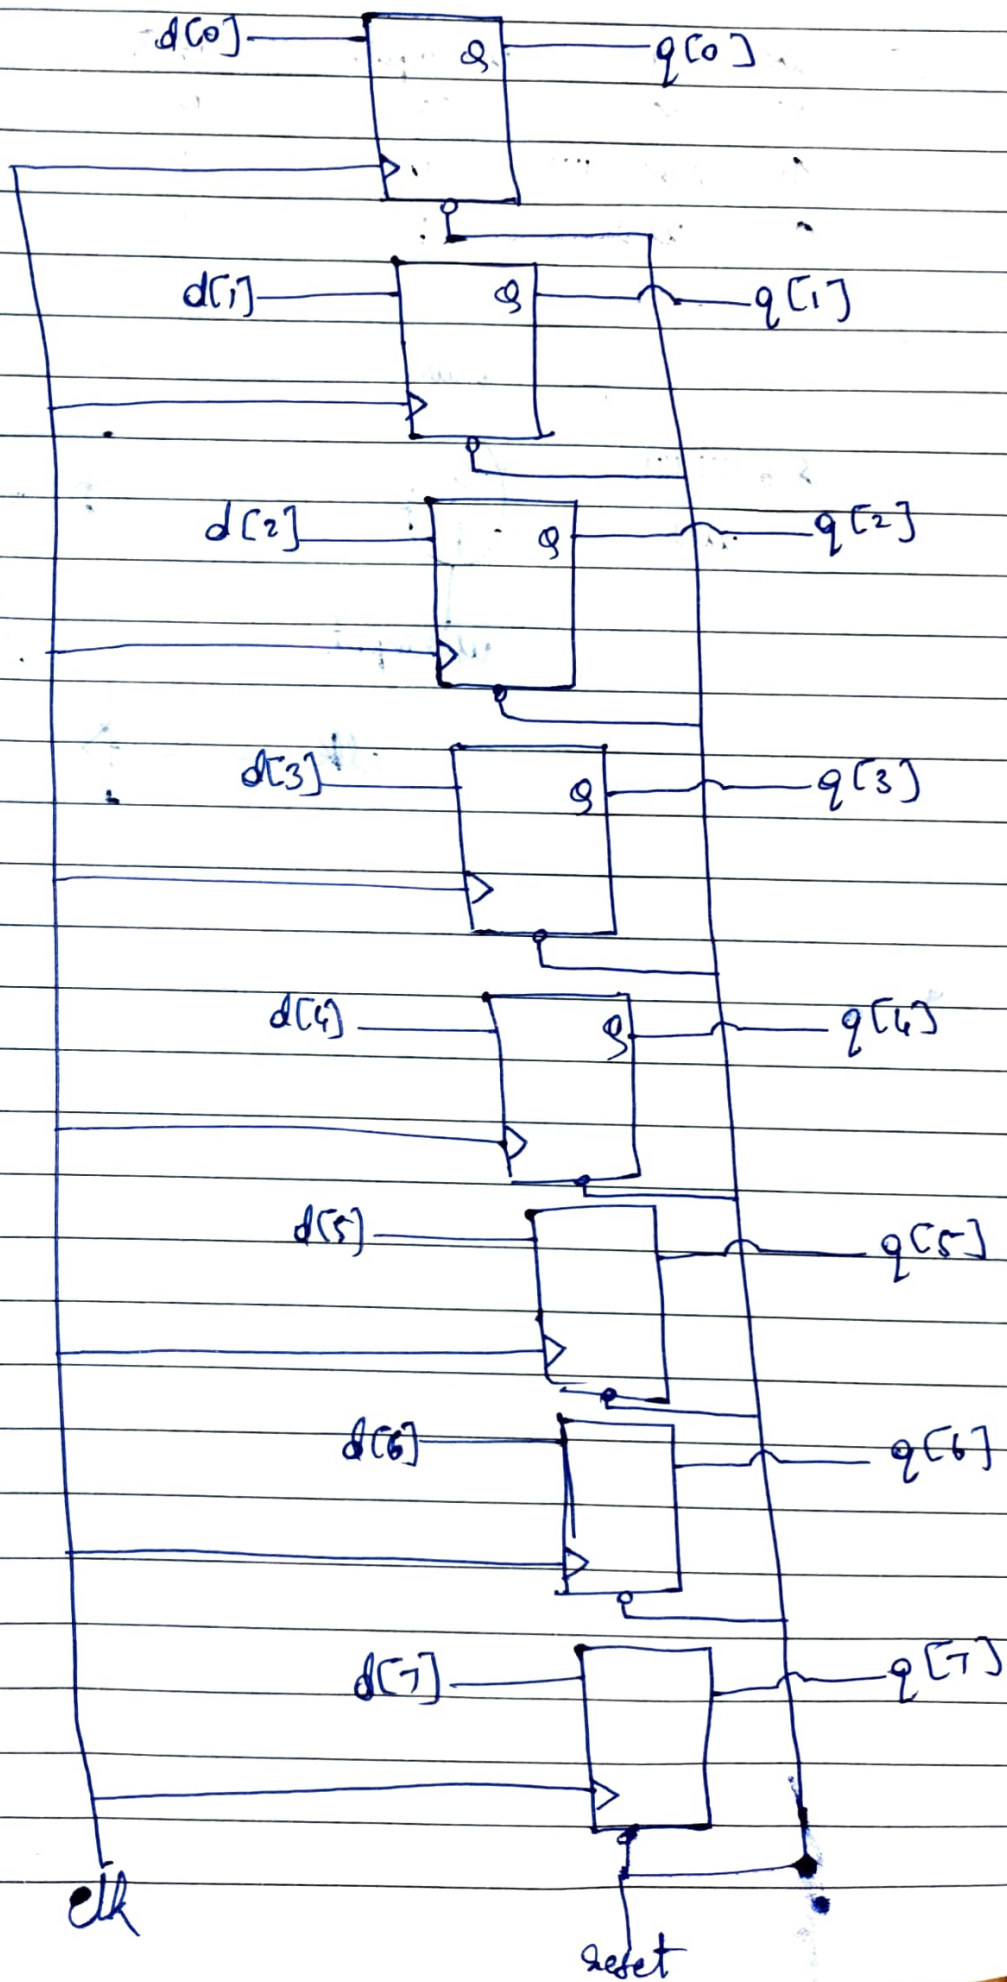 d[0] Q q[0]
d[1] Q q[1]
d[2] Q q[2]
d[3] Q q[3]
d[4] Q q[4]
d[5] q[5]
d[6] q[6]
d[7] q[7]
clk
reset